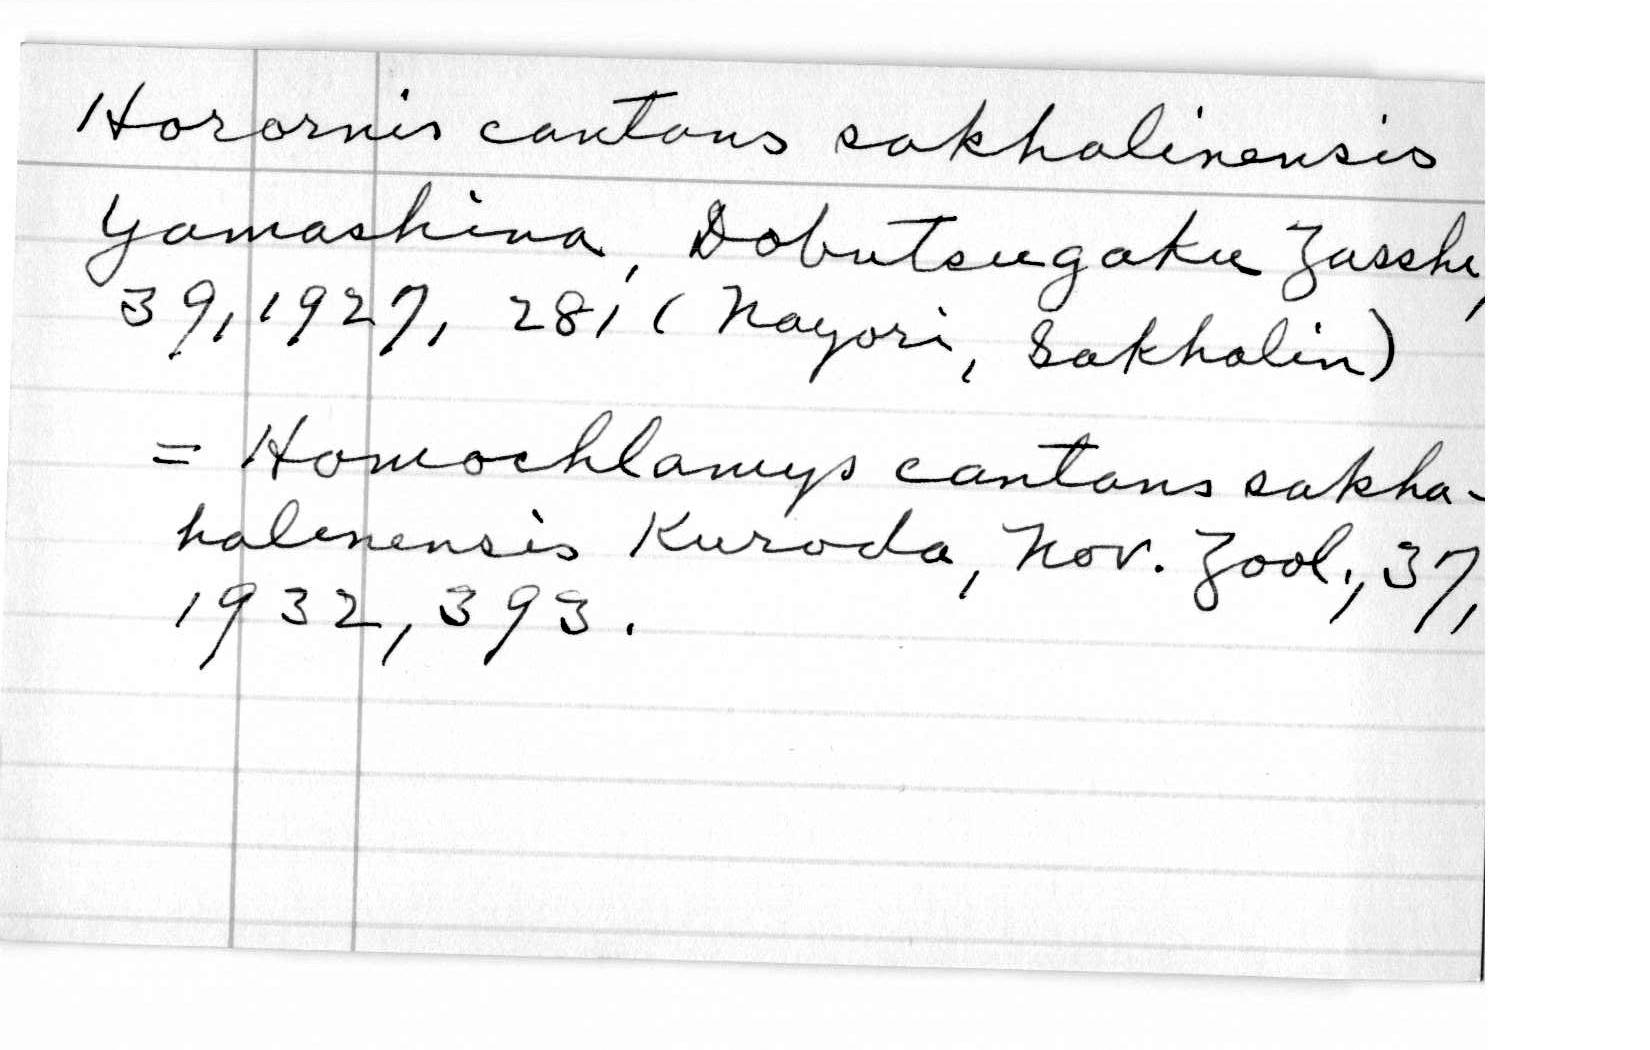 Horornis cantans sakhalinensis
Yamashina, Dobutsugaku Zasshi,
39, 1927, 281 (Nayori, Sakhalin)
= Homochlamys cantans sakha-
halinensis Kuroda, Nov. Zool., 37,
1932, 393.